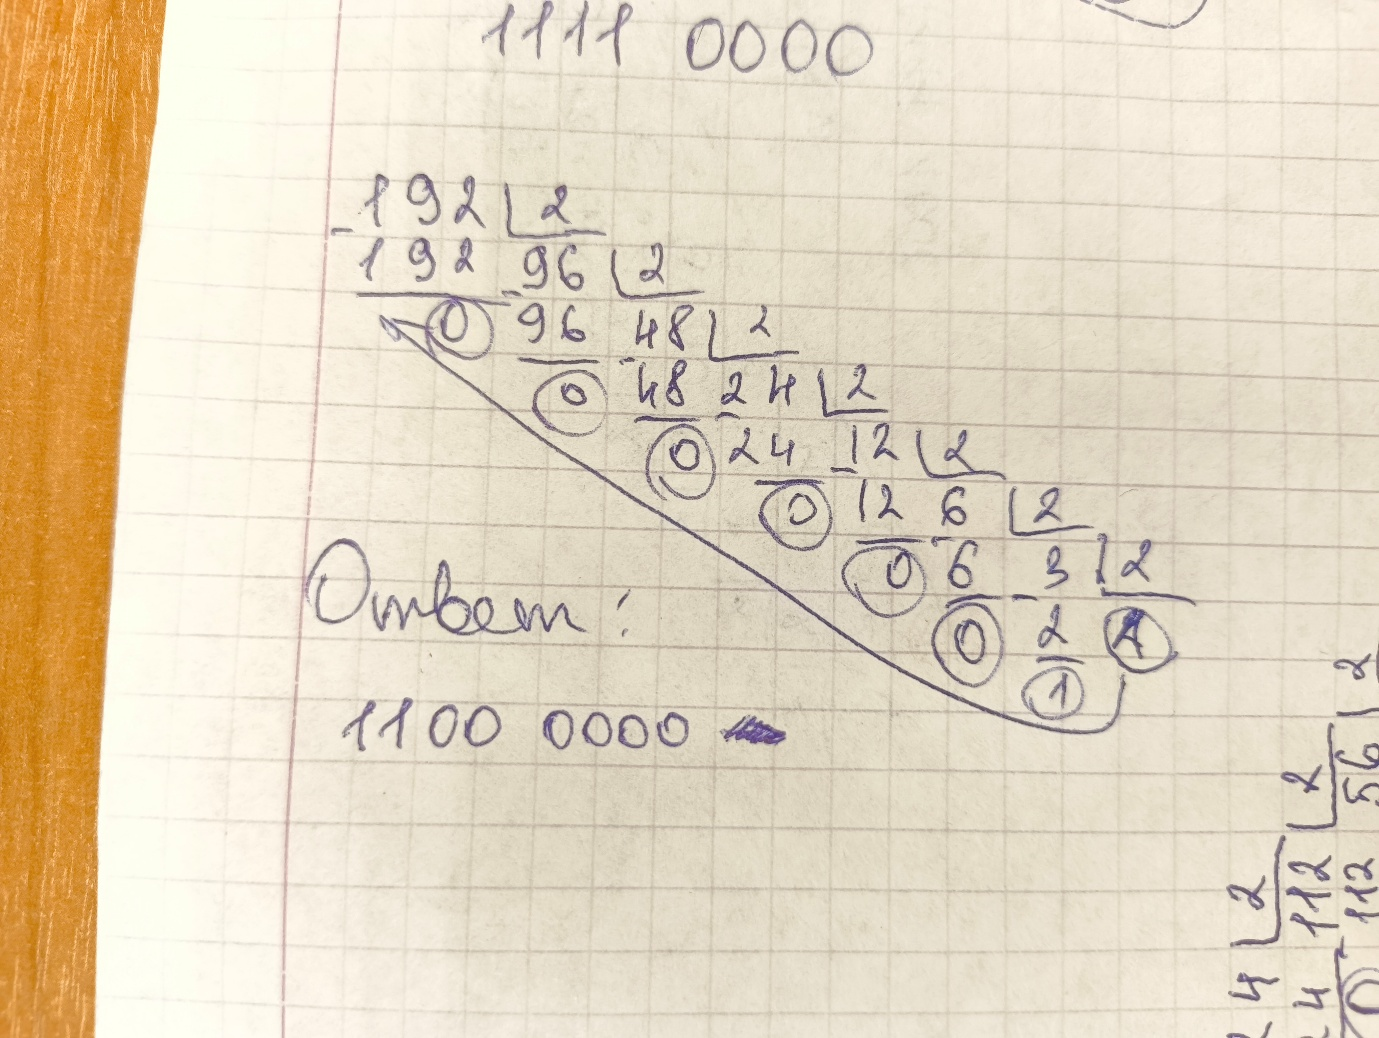 1111 0000
192 2
192 96 2
0 96 48 2
0 48 24 2
0 24 12 2
0 12 6 2
0 6 3 2
0 2 1
1
Ответ:
1100 0000
2
2 56
2 112 112
4 4 0